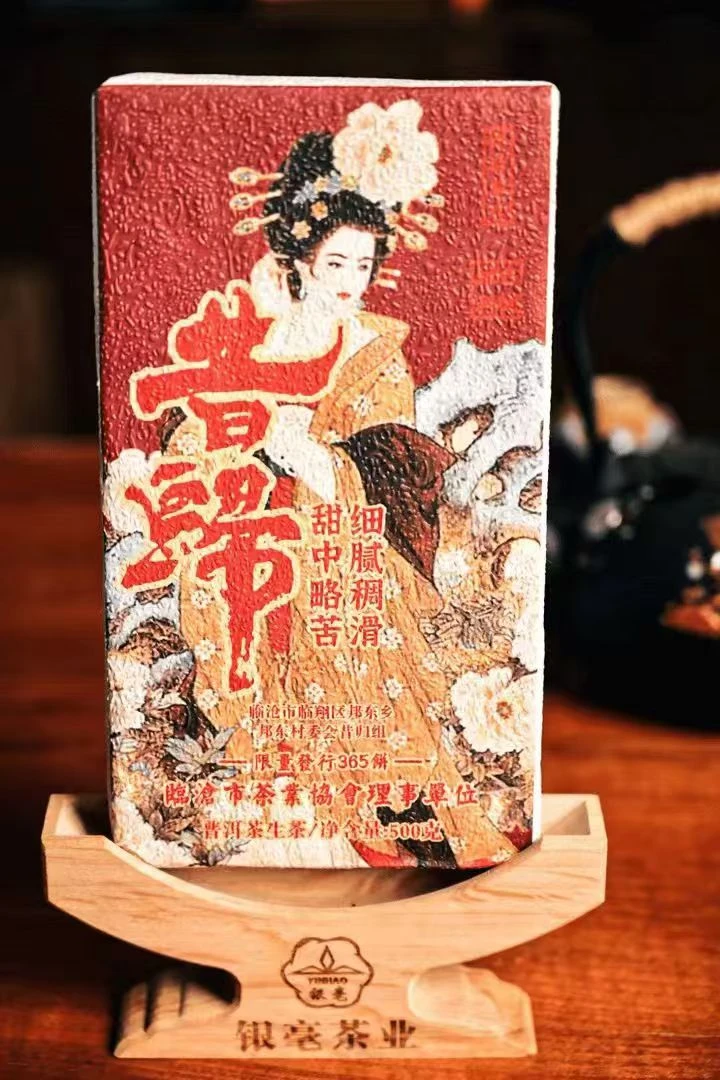 昔歸
细腻稠滑
甜中略苦
临沧市临翔区邦东乡
邦东村委会昔归组
限量發行365餅
臨滄市茶業協會理事單位
普洱茶生茶/净含量:500克
YINHAO
銀毫
银毫茶业